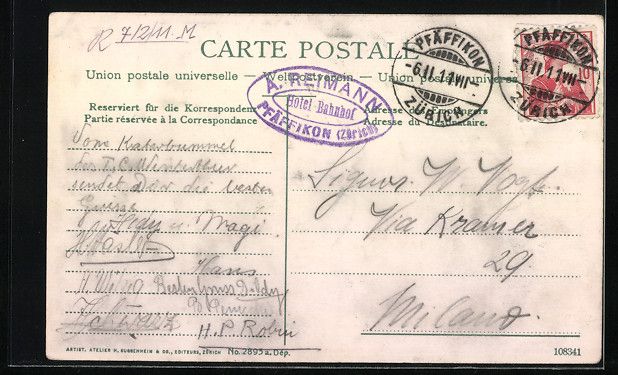 R 712/11.M
CARTE POSTALE
Union postale universelle – Weltpostverein – Union postale universa
A. REIMANN
Hotel Bahnhof
PFÄFFIKON (Zürich)
PFÄFFIKON
-6.II.11.VII-
ZÜRICH
PFÄFFIKON
-6.II.11.VII-
ZÜRICH
Reserviert für die Korrespondenz
Partie réservée à la Correspondance
Adresse des
Adresse du Destinataire.
Vom Katerbummel
des F.C. Winterthur
sendet Dir die besten
Grüsse
Hedy u. Magi
Hans
H. P. Robin
Signor W. Vogt.
Via Kramer
29
Milano.
ARTIST. ATELIER H. GUGGENHEIM & CO., EDITEURS, ZÜRICH No. 2895 a. Dép.
108341